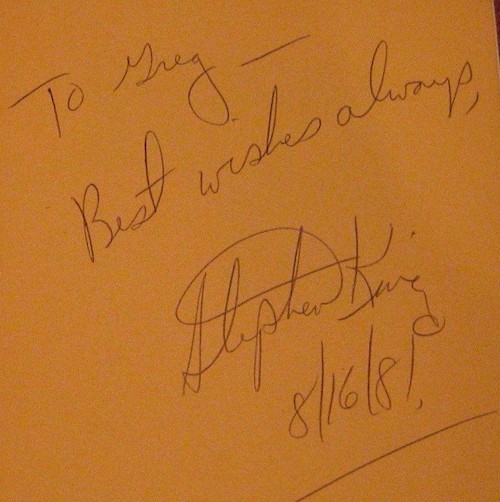 To Greg —
Best wishes always,
Stephen King
8/16/81.